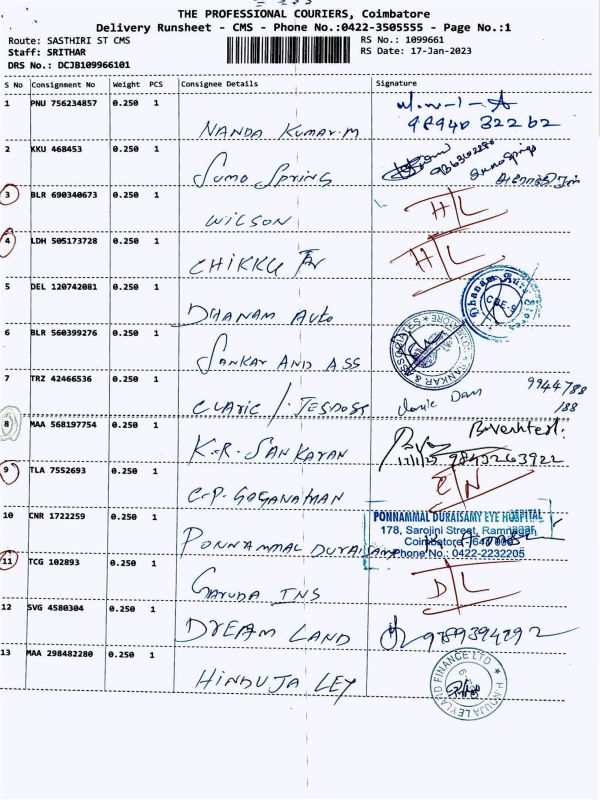 THE PROFESSIONAL COURIERS, Coimbatore
Delivery Runsheet - CMS - Phone No.:0422-3505555 - Page No.:1
Route: SASTHIRI ST CMS
RS No.: 1099661
Staff: SRITHAR
RS Date: 17-Jan-2023
DRS No.: DCJB109966101
S No Consignment No Weight PCS Consignee Details Signature
1 PNU 756234857 0.250 1
NANDA KUMAR.M
98940 32262
2 KKU 468453 0.250 1
SUMO SPRING
3 BLR 690340673 0.250 1
WILSON H/L
4 LDH 505173728 0.250 1
CHIKKU H/L
5 DEL 120742081 0.250 1
DHANAM AUTO
6 BLR 560399276 0.250 1
SANKAR AND ASS
SANKAR & ASSOCIATES * COIMBATORE *
7 TRZ 42466536 0.250 1
9944788
188
8 MAA 568197754 0.250 1
K.R. SANKARAN 9840263922
9 TLA 7552693 0.250 1
C.P. GOGANATHAN
10 CNR 1722259 0.250 1
PONNAMMAL DURAISAMY
PONNAMMAL DURAISAMY EYE HOSPITAL
178, Sarojini Street, Ramnagar
Coimbatore - 641 009
Phone No.: 0422-2232205
11 TCG 102893 0.250 1
GARUDA INS D/L
12 SVG 4580304 0.250 1
DREAM LAND 9789394292
13 MAA 298482280 0.250 1
HINDUJA LEY
HINDUJA LEYLAND FINANCE LTD